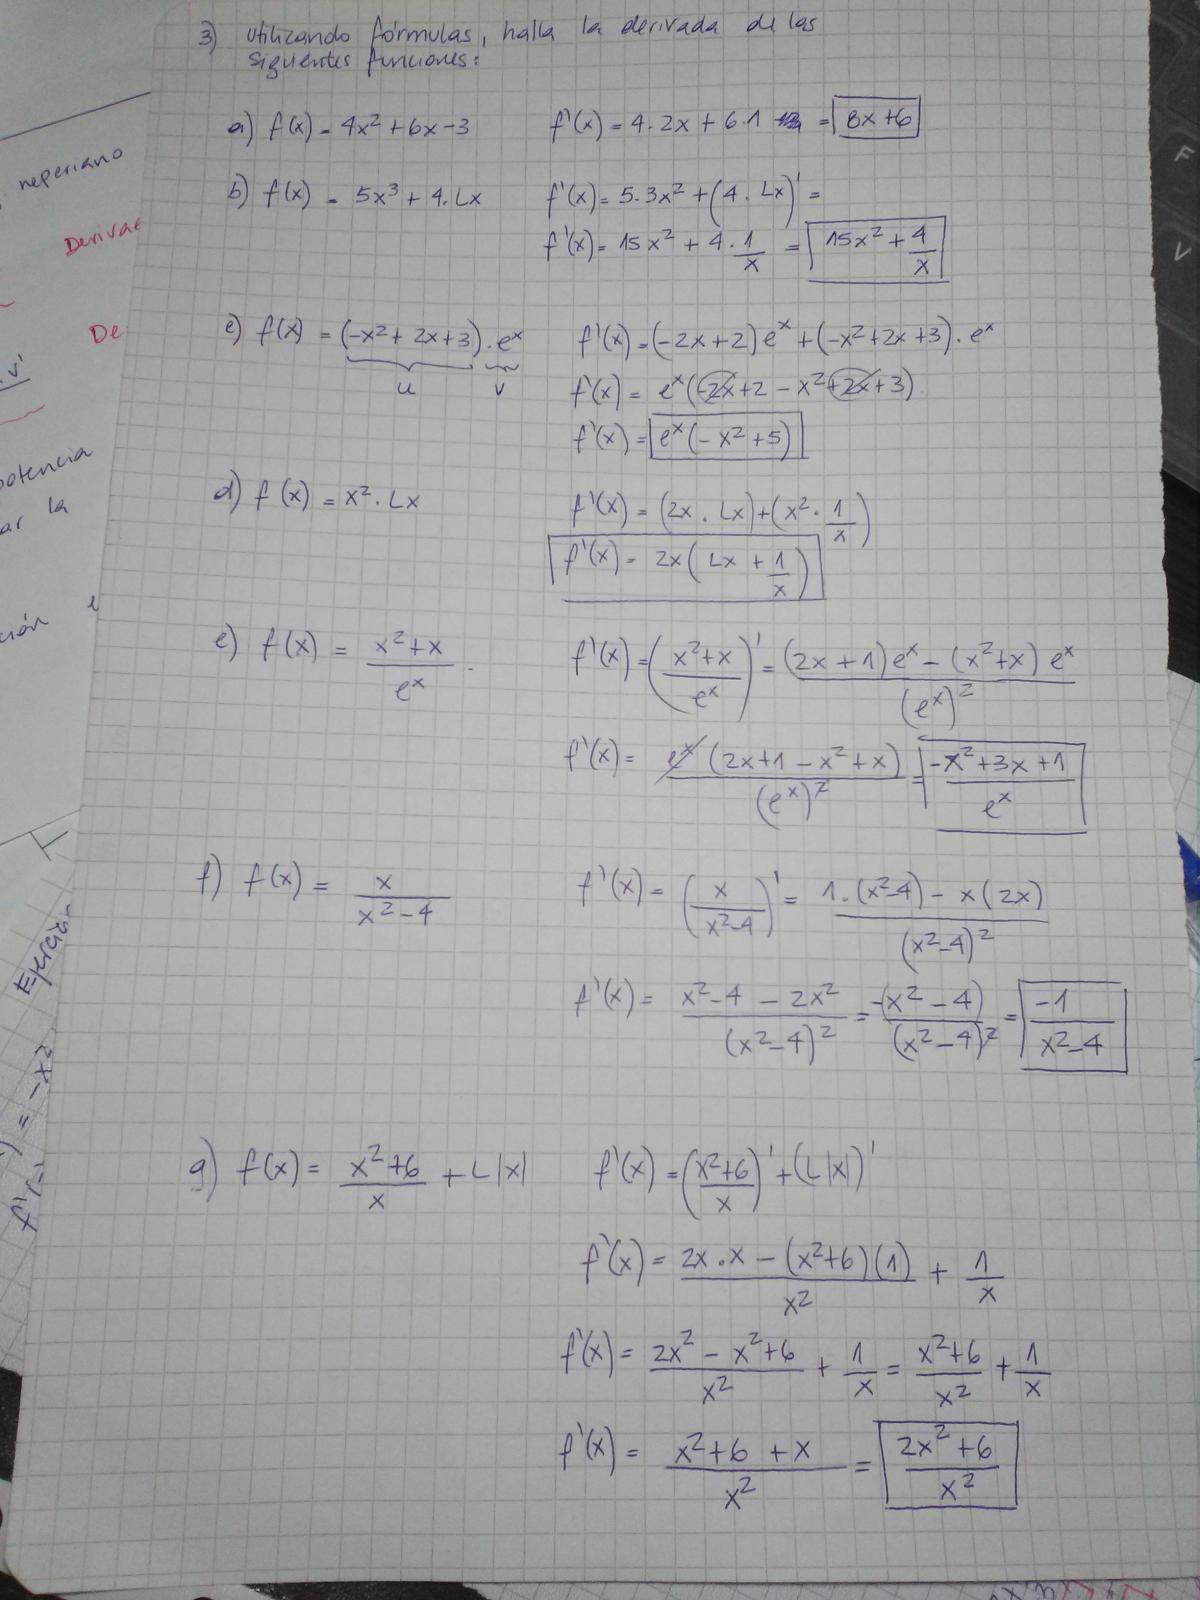 3) Utilizando fórmulas, halla la derivada de las
siguientes funciones:
a) f(x) = 4x² + 6x - 3    f'(x) = 4·2x + 6·1 = 8x + 6
b) f(x) = 5x³ + 4·Lx    f'(x) = 5·3x² + (4·Lx)' =
f'(x) = 15x² + 4·1/x = 15x² + 4/x
c) f(x) = (-x² + 2x + 3)·eˣ    f'(x) = (-2x + 2)eˣ + (-x² + 2x + 3)·eˣ
u v    f'(x) = eˣ(-2x + 2 - x² + 2x + 3)
f'(x) = eˣ(-x² + 5)
d) f(x) = x²·Lx    f'(x) = (2x·Lx) + (x²·1/x)
f'(x) = 2x(Lx + 1/x)
e) f(x) = (x² + x)/eˣ    f'(x) = ((x² + x)/eˣ)' = ((2x + 1)eˣ - (x² + x)eˣ)/(eˣ)²
f'(x) = eˣ(2x + 1 - x² + x)/(eˣ)² = (-x² + 3x + 1)/eˣ
f) f(x) = x/(x² - 4)    f'(x) = (x/(x² - 4))' = (1·(x² - 4) - x(2x))/(x² - 4)²
f'(x) = (x² - 4 - 2x²)/(x² - 4)² = -(x² - 4)/(x² - 4)² = -1/(x² - 4)
g) f(x) = (x² + 6)/x + L|x|    f'(x) = ((x² + 6)/x)' + (L|x|)'
f'(x) = (2x·x - (x² + 6)(1))/x² + 1/x
f'(x) = (2x² - x² + 6)/x² + 1/x = (x² + 6)/x² + 1/x
f'(x) = (x² + 6 + x)/x² = (2x² + 6)/x²
neperiano
Derivac
De
·v'
potencia
ar la
ción
Ejercici
= -x²